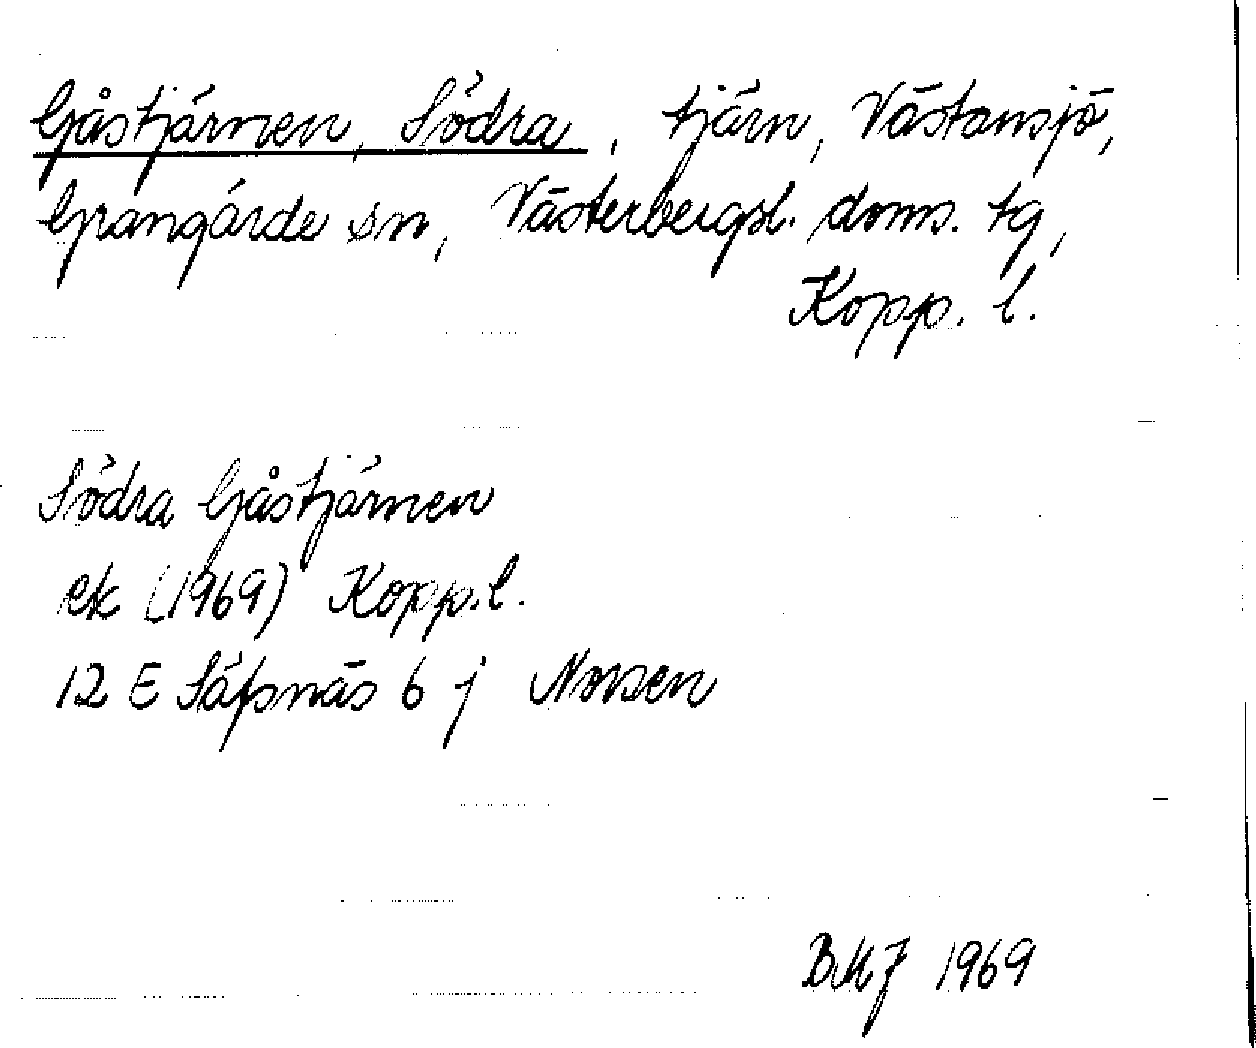 Gåstjärnen, Södra, tjärn, Västansjö,
Grangärde sn, Västerbergsl. doms. tg,
Kopp. l.
Södra Gåstjärnen
ek (1969) Kopp. l.
12 E Säfsnäs 6 j Norsen
BMJ 1969